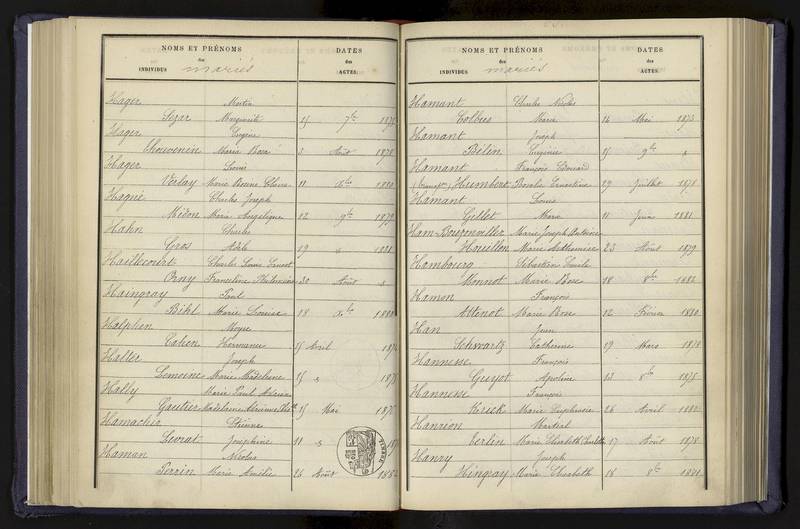 NOMS ET PRÉNOMS
des
INDIVIDUS mariés
DATES
des
ACTES.
Hager Martin
Sizar Marguerite 15 7bre 187
Hager Eugène
Thouvenin Marie Rose 3 Août 1878
Hager Louis
Verlay Marie Claire 11 Xbre
Hagné Charles Joseph
Médon Marie Angélique 12 9bre 1879
Hahn Charles
Gros Adèle 19
Haillecourt Charles Louis Ernest
Orny Françoise 30 Août
Haingray Paul
Bihl Marie Louise 18 Xbre 1880
Halphen Moyse
Cahen Hermance 15 Avril 187
Halter Joseph
Lemoine Marie Madeleine 15 187
Hally Marie Paul
Gautier Madeleine 15 Mai 187
Hamacher Etienne
Levrat Joséphine 11
Haman Nicolas
Perrin Marie Amélie 25 Août 1882
NOMS ET PRÉNOMS
des
INDIVIDUS mariés
DATES
des
ACTES.
Hamant Charles Nicolas
Colbus Marie 14 Mai 1873
Hamant Joseph
Bilin Eugénie 15 9bre
Hamant François Edouard
Humbert Rosalie Ernestine 29 Juillet 1878
Hamant Louis
Gillet Marie 11 Juin 1881
Ham-Bougonviller Marie Joseph Antoine
Houillon Marie Arthémise 23 Août 1879
Hambourg Sébastien Emile
Monnot Marie Rose 18 8bre 1882
Hamon François
Attenot Marie Rose 12 Février 1880
Han Jean
Schwartz Catherine 19 Mars 1878
Hannesse François
Guyot Apoline 13 8bre 1875
Hannesse François
Krick Marie Euphrasie 26 Avril 1882
Hanrion Martial
Verlin Marie Elisabeth 17 Août 1878
Hanry Joseph
Hingray Marie Elisabeth 18 8bre 1881